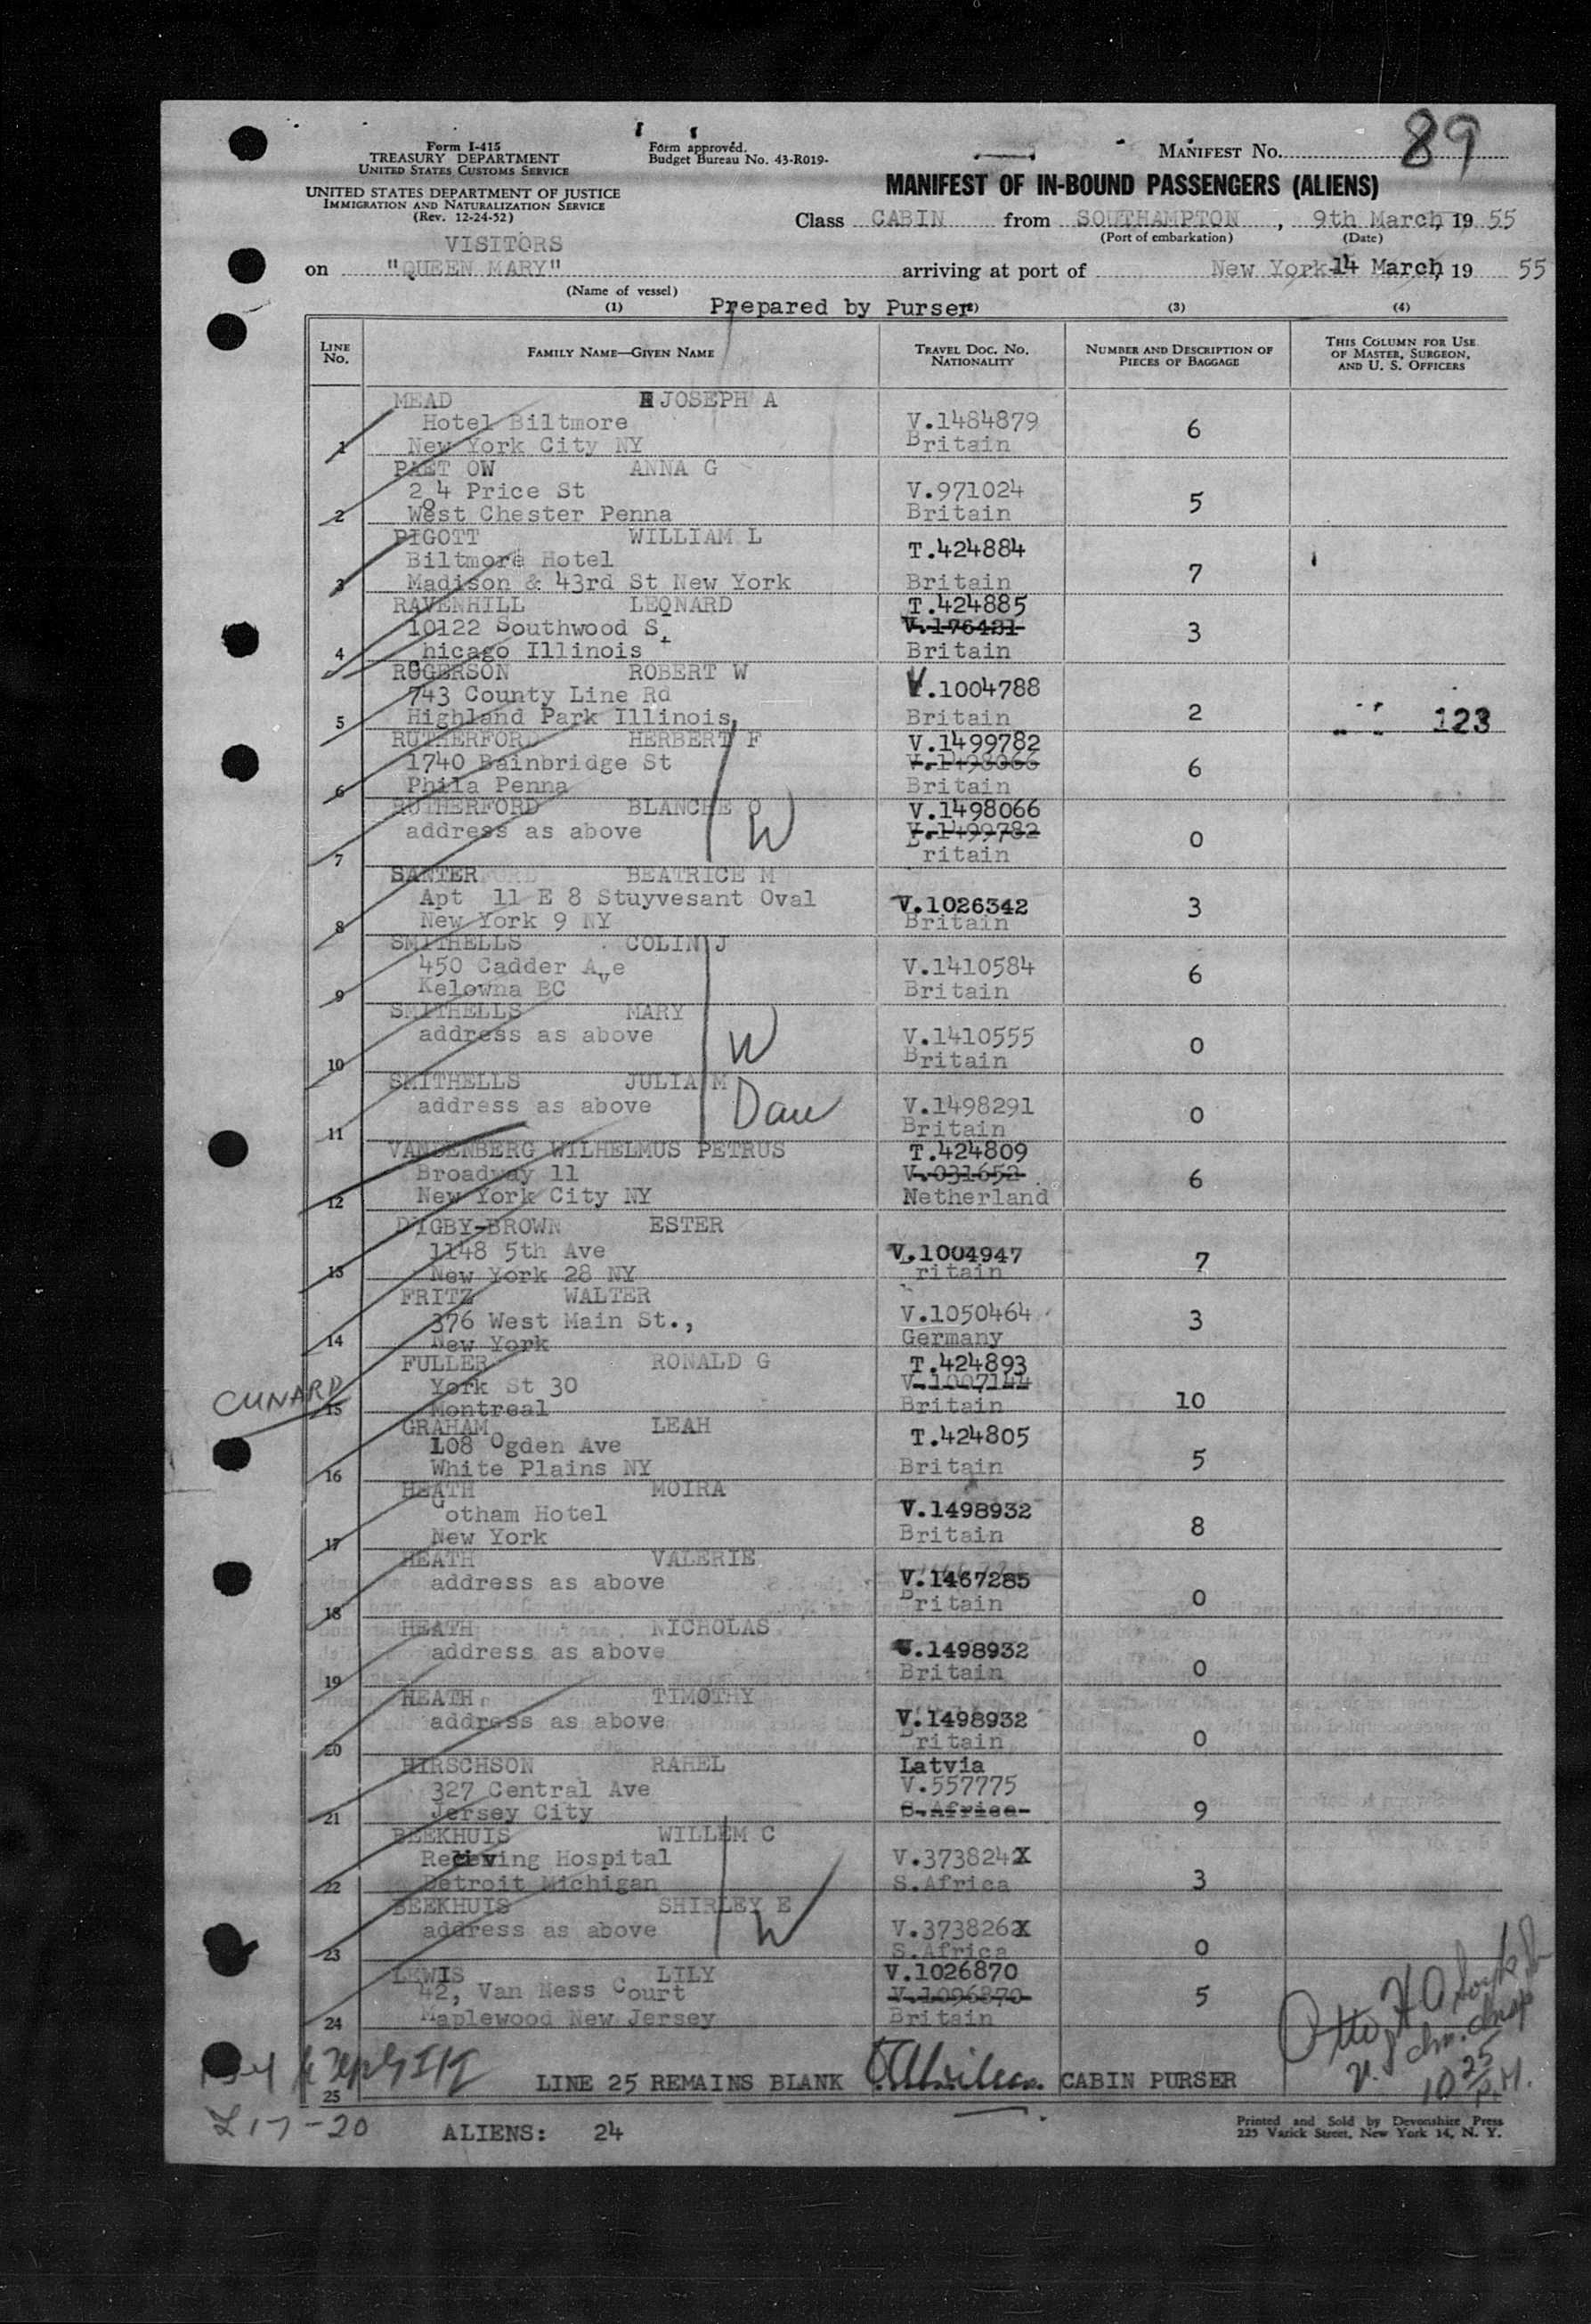 89
Form I-415
TREASURY DEPARTMENT
UNITED STATES CUSTOMS SERVICE
UNITED STATES DEPARTMENT OF JUSTICE
IMMIGRATION AND NATURALIZATION SERVICE
(Rev. 12-24-52)
Form approved.
Budget Bureau No. 43-R019-
MANIFEST No.
MANIFEST OF IN-BOUND PASSENGERS (ALIENS)
Class CABIN from SOUTHAMPTON, 9th March, 19 55
(Port of embarkation) (Date)
VISITORS
on "QUEEN MARY" arriving at port of New York 14 March, 19 55
(Name of vessel)
(1) Prepared by Purser (3) (4)
LINE No. FAMILY NAME—GIVEN NAME TRAVEL DOC. No. NATIONALITY NUMBER AND DESCRIPTION OF PIECES OF BAGGAGE THIS COLUMN FOR USE OF MASTER, SURGEON, AND U. S. OFFICERS
MEAD JOSEPH A
Hotel Biltmore V.1484879 6
1 New York City NY Britain
PAET OW ANNA G
204 Price St V.971024 5
2 West Chester Penna Britain
PIGOTT WILLIAM L
Biltmore Hotel T.424884
3 Madison & 43rd St New York Britain 7
RAVENHILL LEONARD T.424885
10122 Southwood St V.176421 3
4 hicago Illinois Britain
ROGERSON ROBERT W
743 County Line Rd V.1004788
5 Highland Park Illinois Britain 2 123
RUTHERFORD HERBERT F V.1499782
1740 Bainbridge St V.1498066 6
6 Phila Penna Britain
RUTHERFORD BLANCHE O V.1498066
address as above V.1499782 0
7 W Britain
SANTERFORD BEATRICE M
Apt 11 E 8 Stuyvesant Oval V.1026342 3
8 New York 9 NY Britain
SMITHELLS COLIN J
450 Cadder Ave V.1410584 6
9 Kelowna BC Britain
SMITHELLS MARY
address as above V.1410555 0
10 W Britain
SMITHELLS JULIA M
address as above Dau V.1498291 0
11 Britain
VANDENBERG WILHELMUS PETRUS T.424809
Broadway 11 V.031652 6
12 New York City NY Netherland
DIGBY-BROWN ESTER
1148 5th Ave V.1004947 7
13 New York 28 NY ritain
FRITZ WALTER
376 West Main St., V.1050464 3
14 New York Germany
FULLER RONALD G T.424893
York St 30 V.1007144 10
CUNARD 15 Montreal Britain
GRAHAM LEAH
108 Ogden Ave T.424805 5
16 White Plains NY Britain
HEATH MOIRA
Gotham Hotel V.1498932 8
17 New York Britain
HEATH VALERIE
address as above V.1467285 0
18 Britain
HEATH NICHOLAS
address as above V.1498932 0
19 Britain
HEATH TIMOTHY
address as above V.1498932 0
20 Britain
HIRSCHSON RAHEL Latvia
327 Central Ave V.557775 9
21 Jersey City S.Africa
BEEKHUIS WILLEM C
Recieving Hospital V.373824X 3
22 Detroit Michigan S.Africa
BEEKHUIS SHIRLEY E
address as above V.373826X 0
23 W S.Africa
LEWIS LILY V.1026870
42, Van Ness Court V.1096870 5
24 Maplewood New Jersey Britain
25 LINE 25 REMAINS BLANK CABIN PURSER
Otto
10 25 P.M.
L 17-20
ALIENS: 24
Printed and Sold by Devonshire Press
225 Varick Street, New York 14, N. Y.